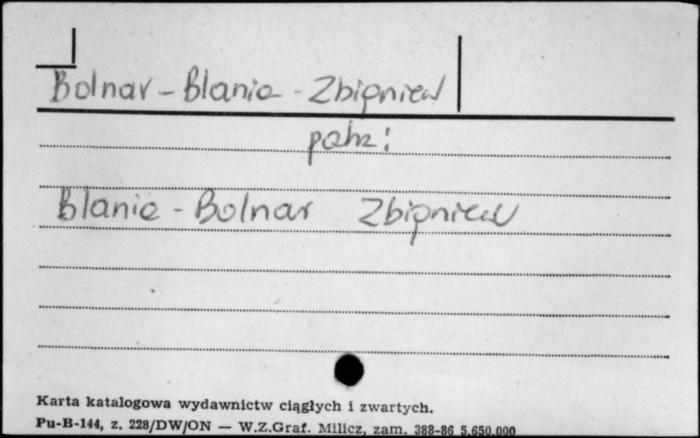 Bolnar - Blania - Zbigniew
patrz:
Blania - Bolnar Zbigniew
Karta katalogowa wydawnictw ciągłych i zwartych.
Pu-B-144, z. 228/DW/ON — W.Z.Graf. Milicz, zam. 388-86 5.650.000